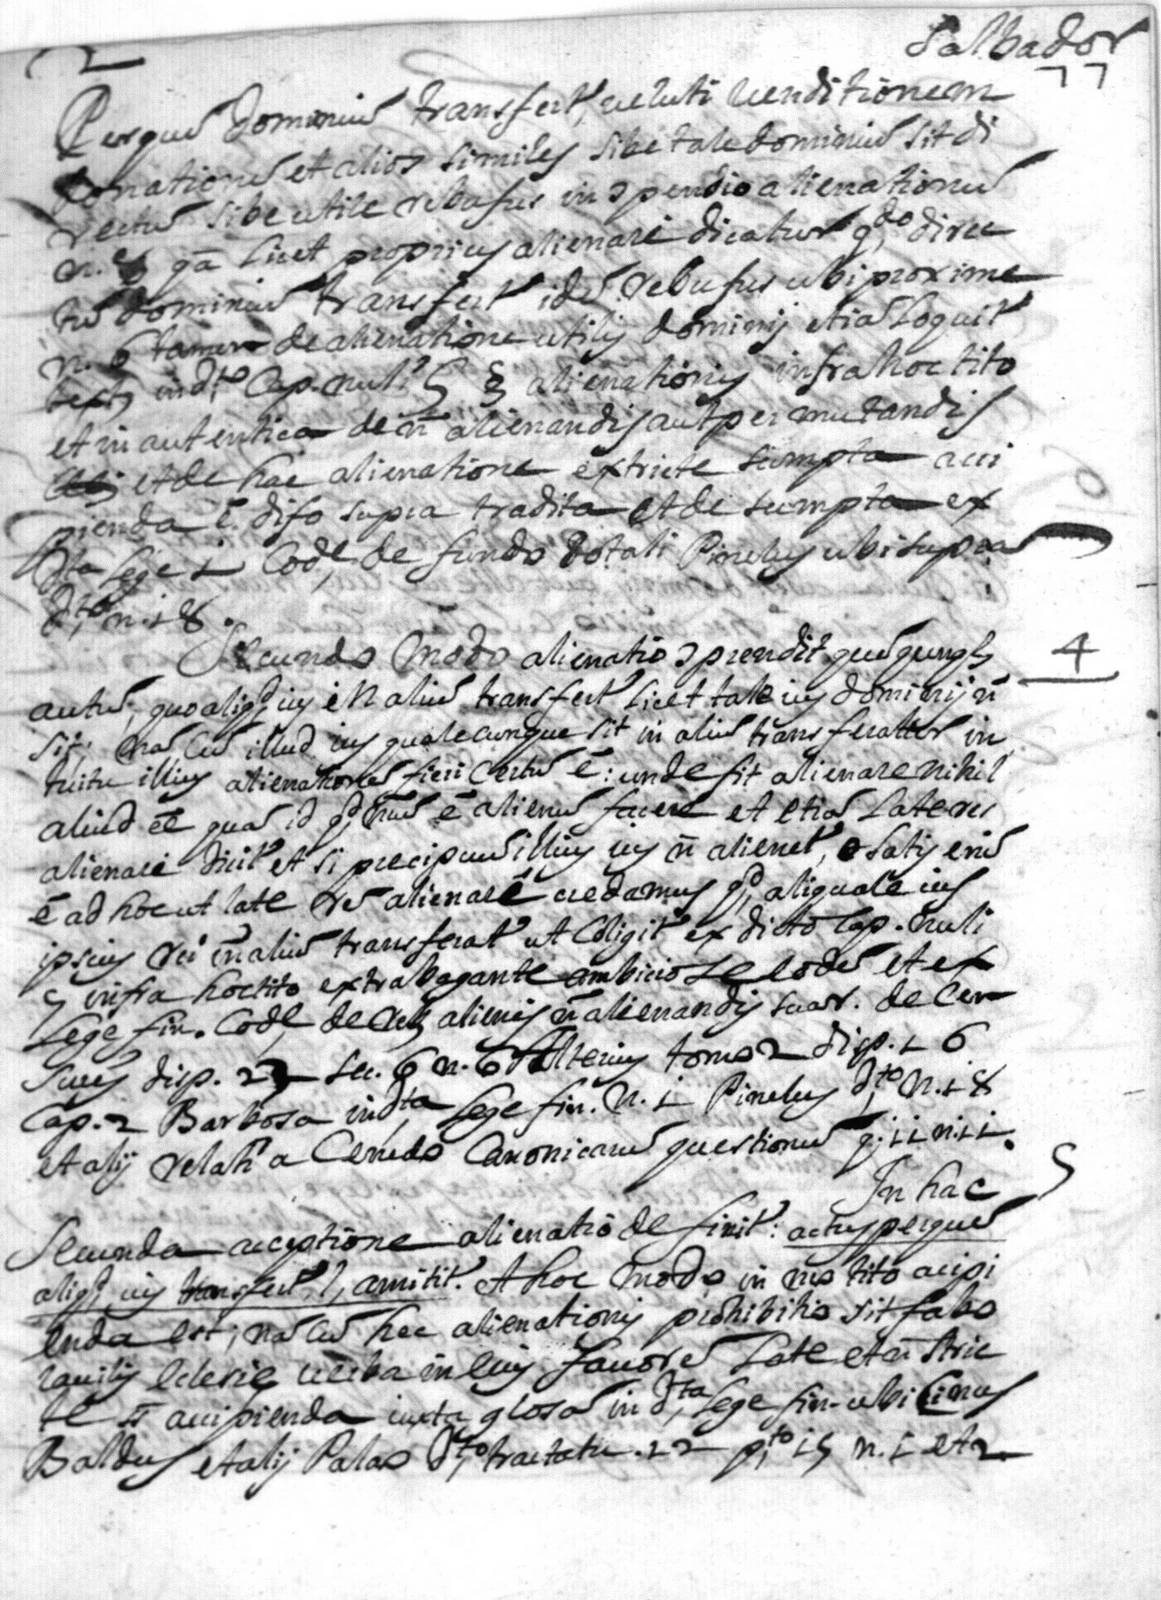 2
Salbador
77
Perquẽ dominiũ transfert, veluti venditionem
donationẽ et alios similes sibe tale dominiũ sit di
rectũ sibe utile rebufus in ɔpendio alienationũ
n. qã licet proprius alienare dicatur q,do direc
tũ dominiũ transfert idẽ rebufus ubi proxime
n. 6 tamen de alienatione utilis dominij etiã loquit
text9 in d,to Cap. nuli § alienationis infra hoc tito
et in autentica de ñ alienandis aut permutandis
et de hac alienatione extricte sumpta acci
pienda ẽ difo supra tradita et de sumpta ex
d,ta lege 1 Code, de fundo dotali Pinelus ubi supra
d,to n. 18.
4
Secundo modo alienatio ɔprendit quẽqunq3
actũ, quo aliq,d ius ĩ aliũ transfert licet tale ius dominij ñ
sit; nã cũ illud ius qualecunque sit in aliũ transferatur in
tuitu illius alienationẽ fieri certũ ẽ: unde sit alienare nihil
aliud eẽ quã id q,d nũ ẽ alienũ facere et etiã latius
alienare dicit et si precipuũ illius ius ñ alienet, satis enĩ
ẽ ad hoc ut late rẽ alienare credamus q,d aliquale ius
ipsius rei in aliũ transferat ut coligit ex dicto Cap. nuli
§ infra hoc tito extrabagante ambiciose eodẽ et ex
lege fin. Code, de reb9 alienis ñ alienandis suar. de Cen
suris disp. 22 sec. 6 n. 6 Molterius tomo 2 disp. 16
Cap. 2 Barbosa in d,ta lege fin. n. 1 Pinelus d,to n. 18
et alij relati a Cenedo Canonicarũ questionũ q. 11 n. 11.
5
In hac
Secunda acceptione alienatio definit: actus perquẽ
aliq,d ius transfert, l, amitit. et hoc modo in nro tito accipi
enda est; nã cũ hec alienationis prohibitio sit fabo
rabilis eclesie verba in eius favorẽ late et ñ stric
te sũ accipienda iuxta glosã in d,ta lege fin. ubi Cinus
Baldus et alij Palao d,to tractatu. 22 p,to 15 n. 1 et 2